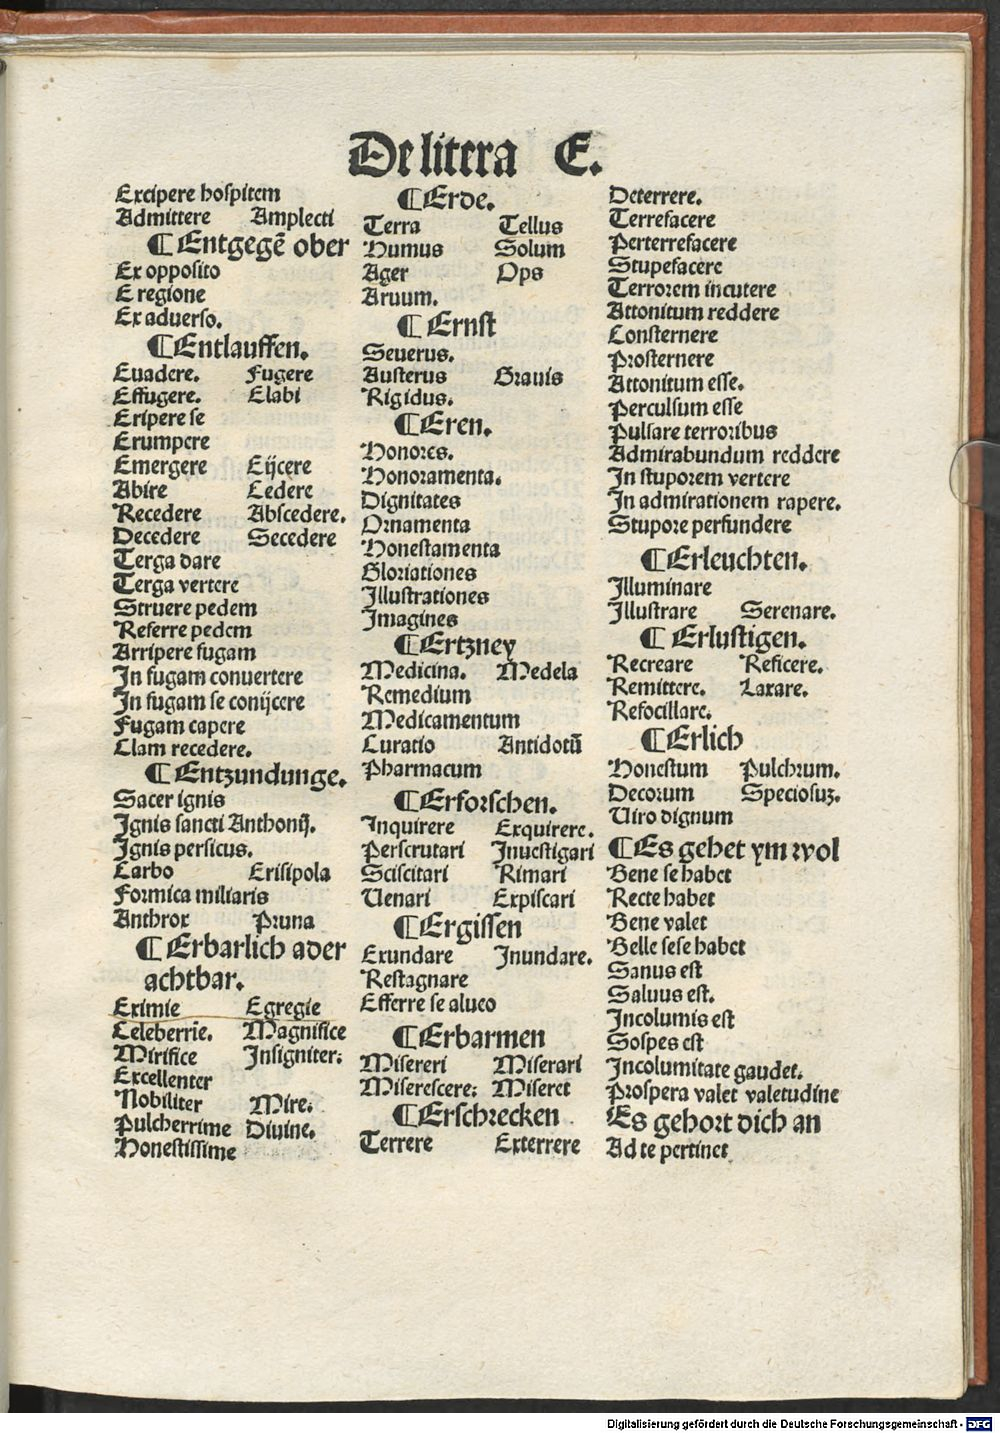 De litera E.
Excipere hospitem
Admittere Amplecti
¶ Entgegē ober
Ex opposito
E regione
Ex aduerso.
¶ Entlauffen.
Euadere. Fugere
Effugere. Elabi
Eripere se
Erumpere
Emergere Eijcere
Abire Cedere
Recedere Abscedere.
Decedere Secedere
Terga dare
Terga vertere
Struere pedem
Referre pedem
Arripere fugam
In fugam conuertere
In fugam se conijcere
Fugam capere
Clam recedere.
¶ Entzundunge.
Sacer ignis
Ignis sancti Anthonij.
Ignis persicus.
Carbo Erisipola
Formica miliaris
Anthrox Pruna
¶ Erbarlich ader
achtbar.
Eximie Egregie
Celeberrie. Magnifice
Mirifice Insigniter:
Excellenter
Nobiliter Mire:
Pulcherrime Diuine.
Honestissime
¶ Erde.
Terra Tellus
Humus Solum
Ager Ops
Aruum.
¶ Ernst
Seuerus.
Austerus Grauis
Rigidus.
¶ Eren.
Honores.
Honoramenta.
Dignitates
Ornamenta
Honestamenta
Gloriationes
Illustrationes
Imagines
¶ Ertzney
Medicina. Medela
Remedium
Medicamentum
Curatio Antidotū
Pharmacum
¶ Erforschen.
Inquirere Exquirere.
Perscrutari Inuestigari
Sciscitari Rimari
Uenari Expiscari
¶ Ergissen
Exundare Inundare.
Restagnare
Efferre se alueo
¶ Erbarmen
Misereri Miserari
Miserescere: Miseret
¶ Erschrecken
Terrere Exterrere
Deterrere.
Terrefacere
Perterrefacere
Stupefacere
Terrorem incutere
Attonitum reddere
Consternere
Prosternere
Attonitum esse.
Perculsum esse
Pulsare terroribus
Admirabundum reddere
In stuporem vertere
In admirationem rapere.
Stupore perfundere
¶ Erleuchten.
Illuminare
Illustrare Serenare.
¶ Erlustigen.
Recreare Reficere.
Remittere. Laxare.
Refocillare.
¶ Erlich
Honestum Pulchrum.
Decorum Speciosuz.
Uiro dignum
¶ Es gehet ym wol
Bene se habet
Recte habet
Bene valet
Belle sese habet
Sanus est
Saluus est.
Incolumis est
Sospes est
Incolumitate gaudet.
Prospera valet valetudine
Es gehort dich an
Ad te pertinet
Digitalisierung gefördert durch die Deutsche Forschungsgemeinschaft - DFG